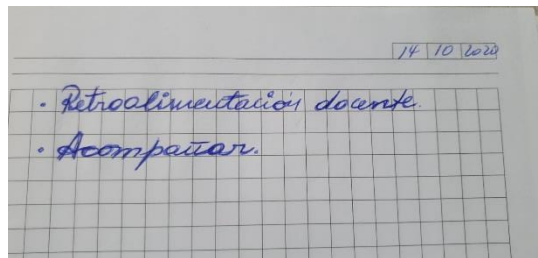 14 10 2020
· Retroalimentación docente.
· Acompañar.